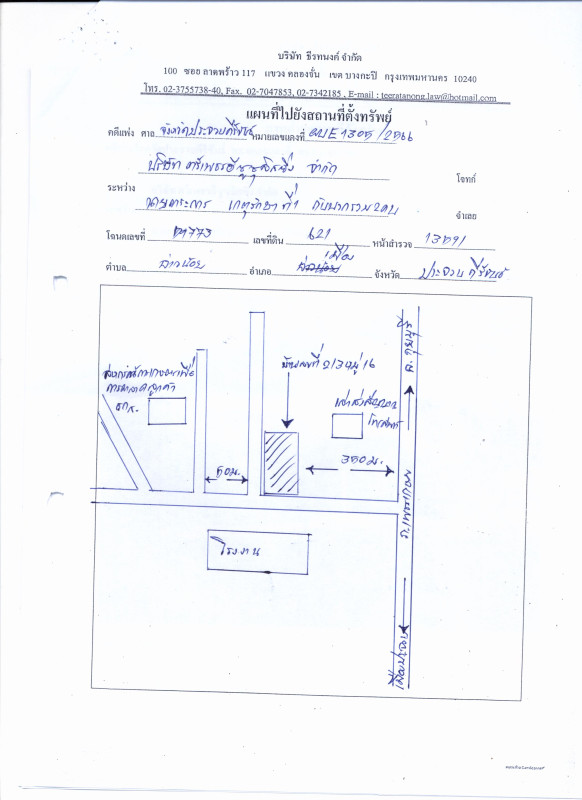 บริษัท ธีรทนงค์ จำกัด
100 ซอย ลาดพร้าว 117 แขวง คลองจั่น เขต บางกะปิ กรุงเทพมหานคร 10240
โทร. 02-3755738-40, Fax. 02-7047853, 02-7342185 , E-mail : teeratanong.law@hotmail.com
แผนที่ไปยังสถานที่ตั้งทรัพย์
คดีแพ่ง ศาล จังหวัดประจวบคีรีขันธ์ หมายเลขแดงที่ ผบE1305/2566
บริษัท ตรีเพชรอีซูซุลิสซิ่ง จำกัด โจทก์
ระหว่าง
ที่ 1 กับพวกรวม 2 คน จำเลย
โฉนดเลขที่ 773 เลขที่ดิน 621 หน้าสำรวจ
เมือง
ตำบล อ่าวน้อย อำเภอ จังหวัด ประจวบคีรีขันธ์
ไป จ.ชุมพร
บ้านเลขที่ 2/34 หมู่ 16
ธกส.
50ม.
350ม.
ถ.เพชรเกษม
โรงงาน